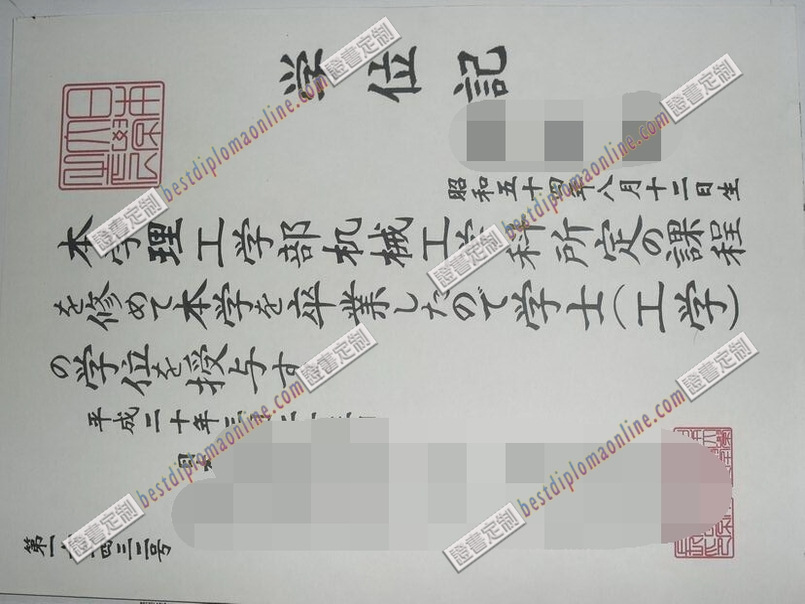 学位記
昭和五十四年八月十二日生
本学理工学部机械工学科所定の課程
を修めて本学を卒業したので学士(工学)
の学位を授与す
平成二十年三月二十
第一 四三二号
證書定制
bestdiplomaonline.com
證書定制
bestdiplomaonline.com
證書定制
證書定制
bestdiplomaonline.com
證書定制
證書定制
bestdiplomaonline.com
證書定制